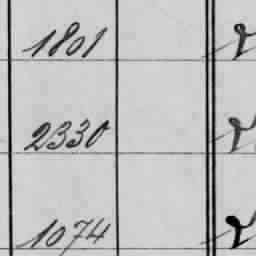 1801
2330
1074